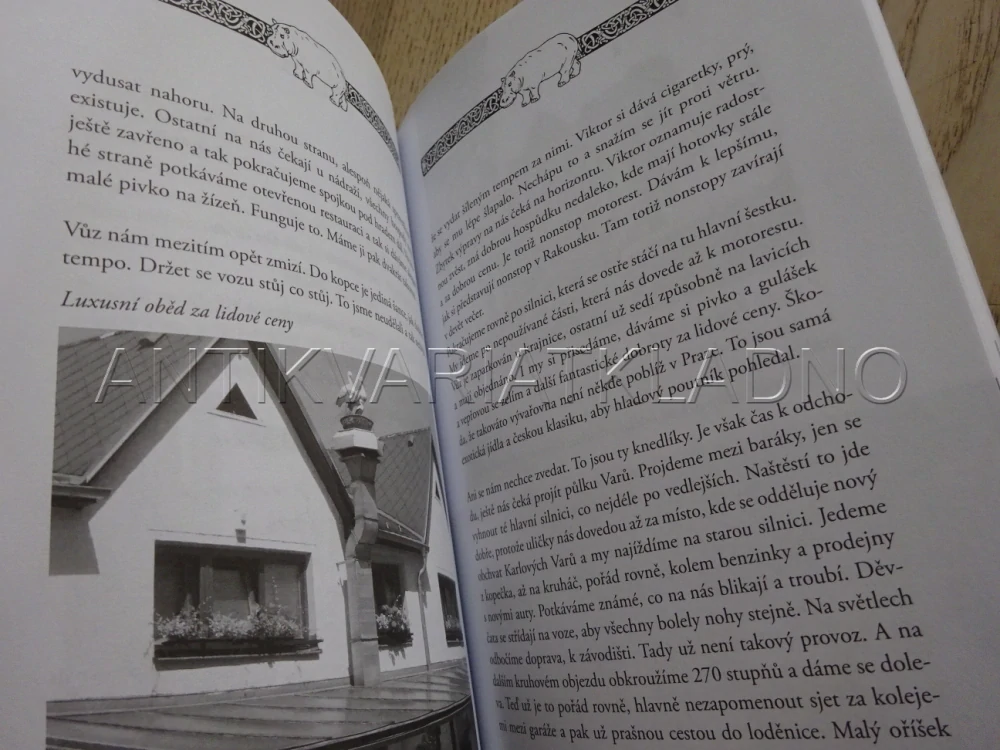 vydusat nahoru. Na druhou stranu, alespoň nějaká
existuje. Ostatní na nás čekají u nádraží, všechny
ještě zavřeno a tak pokračujeme spojkou pod hradem
hé straně potkáváme otevřenou restauraci a tak si dáváme
malé pivko na žízeň. Funguje to. Máme ji pak
Vůz nám mezitím opět zmizí. Do kopce je jediná
tempo. Držet se vozu stůj co stůj. To jsme neudělali a
Luxusní oběd za lidové ceny
se vydat šíleným tempem za nimi. Viktor si dává cigaretky, prý,
aby se mu lépe šlapalo. Nechápu to a snažím se jít proti větru.
Zbytek výpravy na nás čeká na horizontu. Viktor oznamuje radost-
nou zvěst, zná dobrou hospůdku nedaleko, kde mají hotovky stále
a za dobrou cenu. Je totiž nonstop motorest. Dávám k lepšímu,
jak si představují nonstop v Rakousku. Tam totiž nonstopy zavírají
v devět večer.
Pokračujeme rovně po silnici, která se ostře stáčí na tu hlavní šestku.
My jdeme po nepoužívané části, která nás dovede až k motorestu.
Vůz je zaparkován v krajnice, ostatní už sedí způsobně na lavicích
a mají objednáno. I my si přisedáme, dáváme si pivko a gulášek
a vepřovou se zelím a další fantastické dobroty za lidové ceny. Ško-
da, že takováto vývařovna není někde poblíž v Praze. To jsou samá
exotická jídla a českou klasiku, aby hladový poutník pohledal.
Ani se nám nechce zvedat. To jsou ty knedlíky. Je však čas k odcho-
du, ještě nás čeká projít půlku Varů. Projdeme mezi baráky, jen se
vyhnout té hlavní silnici, co nejdéle po vedlejších. Naštěstí to jde
dobře, protože uličky nás dovedou až za místo, kde se odděluje nový
obchvat Karlových Varů a my najíždíme na starou silnici. Jedeme
z kopečka, až na kruháč, pořád rovně, kolem benzinky a prodejny
s novými auty. Potkáváme známé, co na nás blikají a troubí. Děv-
čata se střídají na voze, aby všechny bolely nohy stejně. Na světlech
odbočíme doprava, k závodišti. Tady už není takový provoz. A na
dalším kruhovém objezdu obkroužíme 270 stupňů a dáme se dole-
va. Teď už je to pořád rovně, hlavně nezapomenout sjet za koleje-
mi mezi garáže a pak už prašnou cestou do loděnice. Malý oříšek
ANTIKVARIAT KLADNO